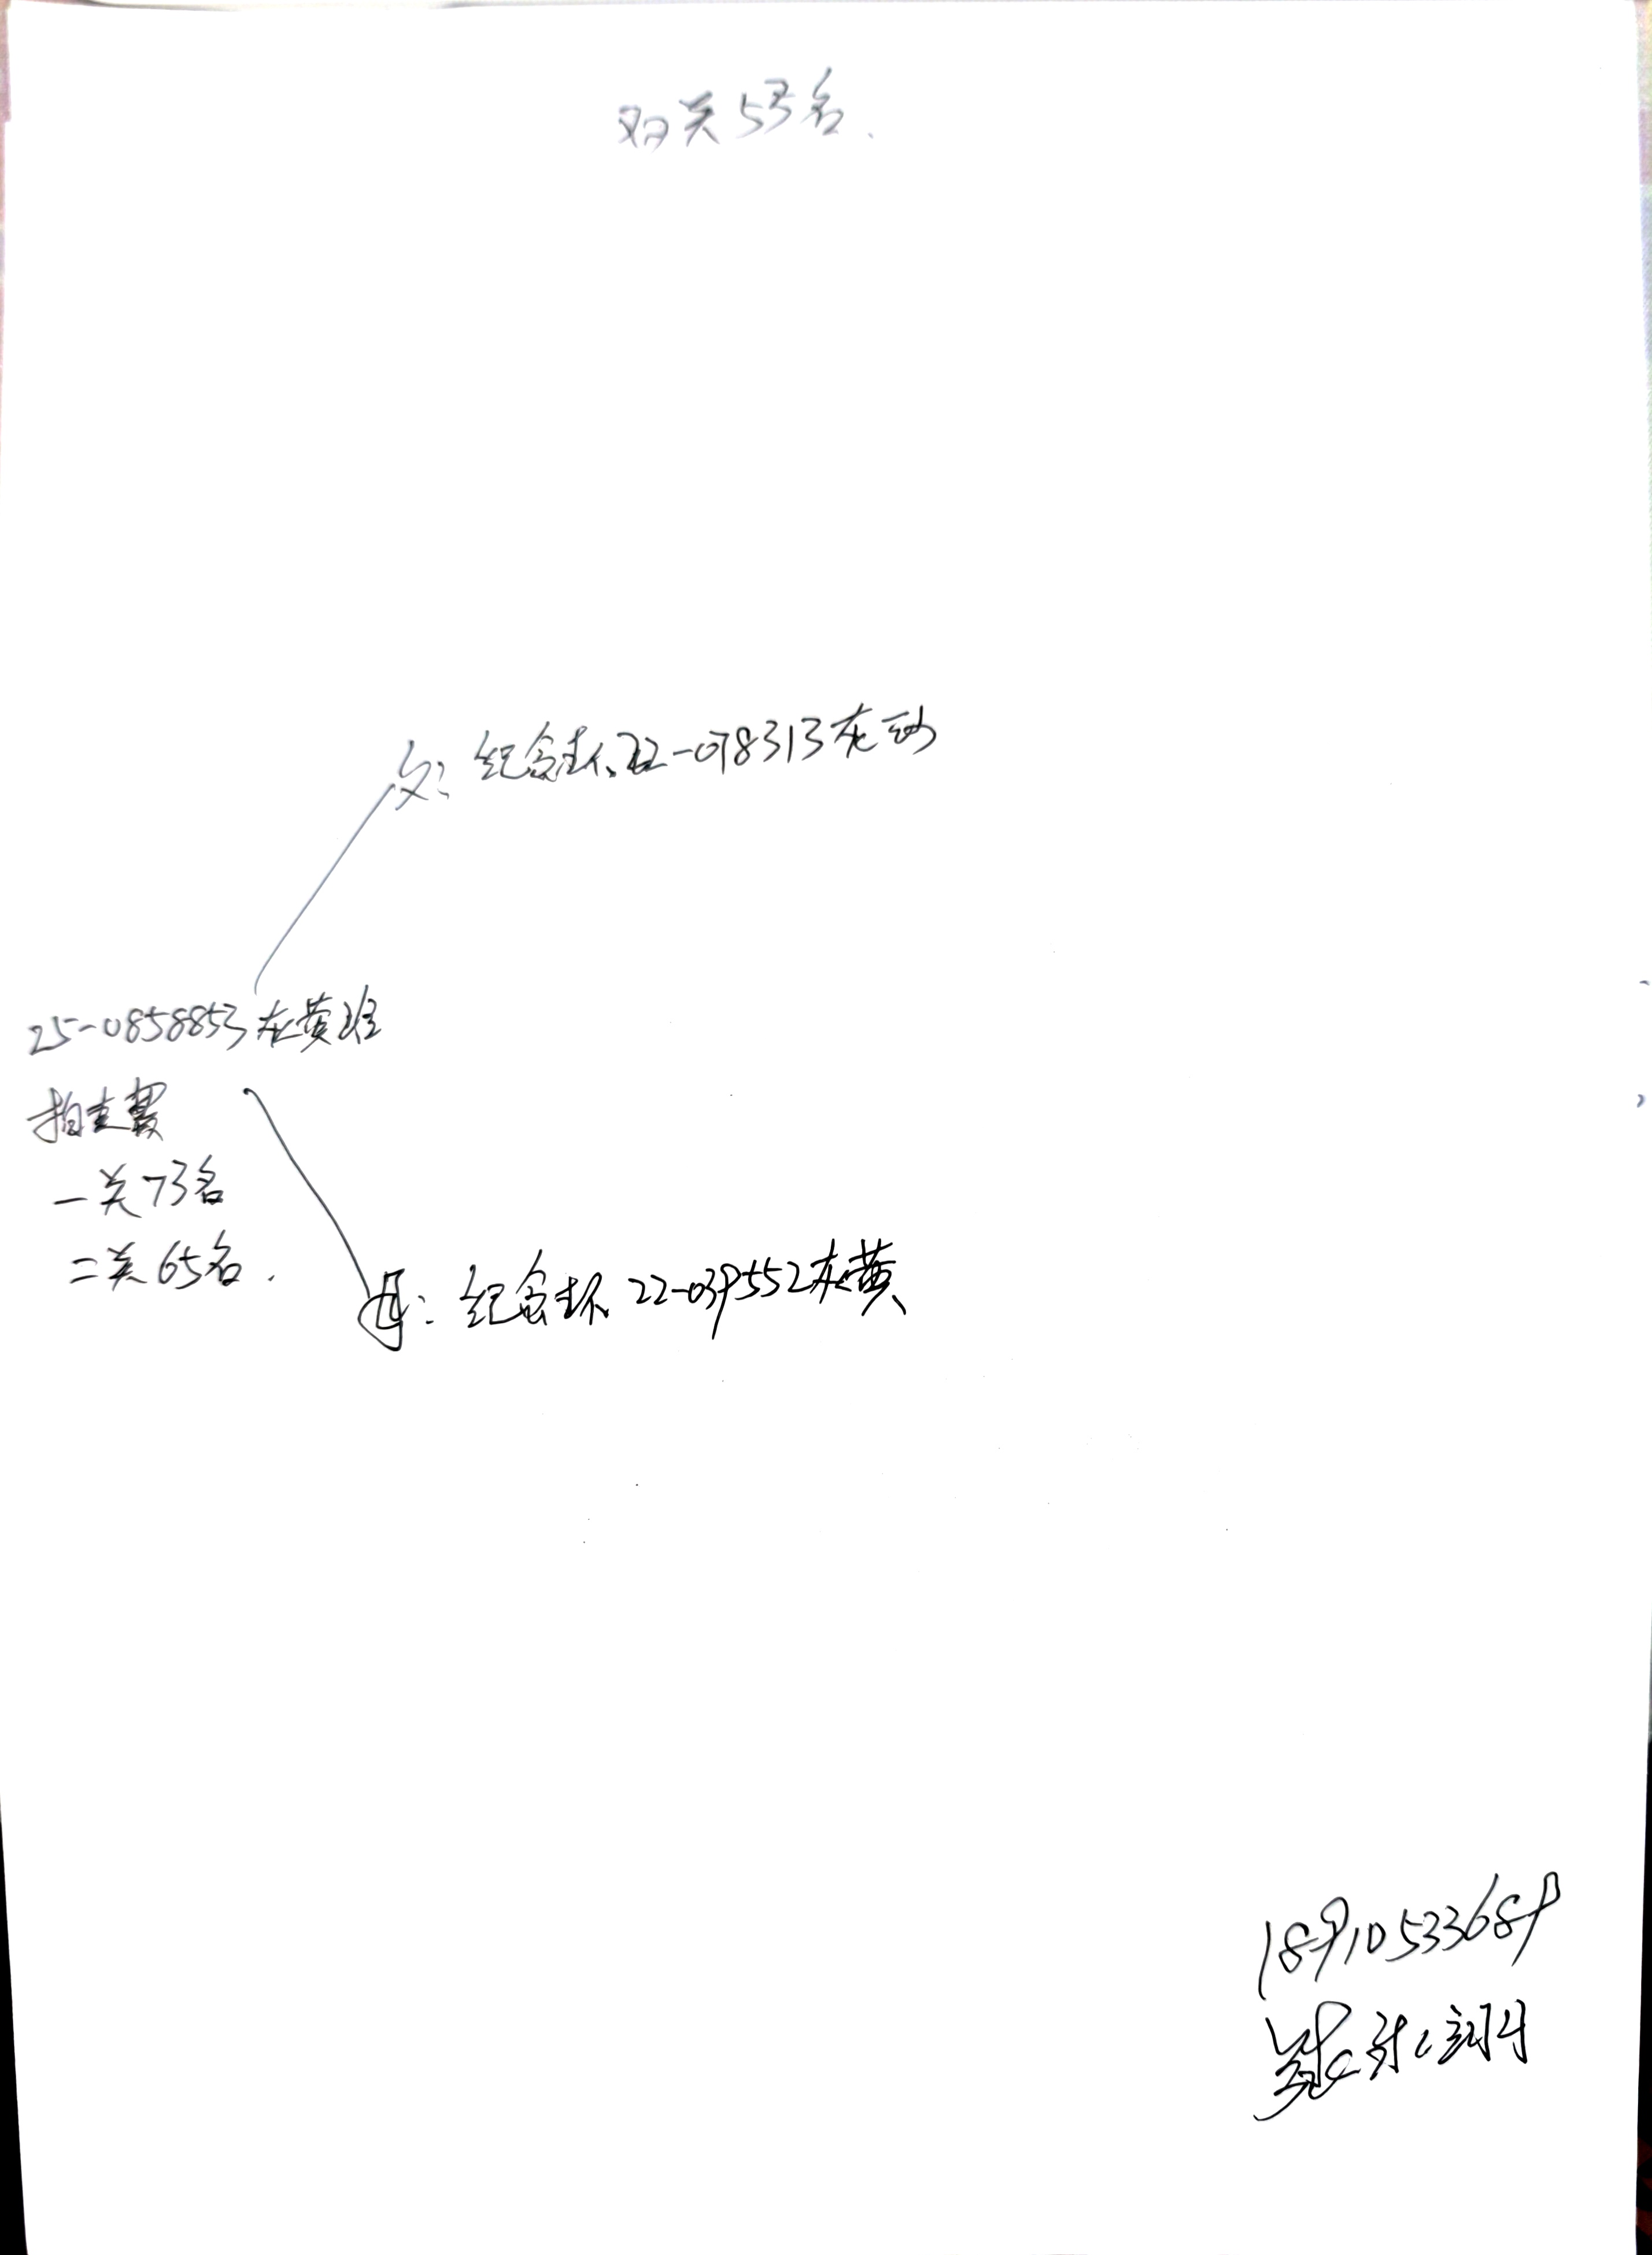 双关53名.
父: 纪念环 22-078313 灰
25-0858853 灰黄斑
指定赛
一关73名
二关65名.
母: 纪念环 22-039552 灰黄
18910533689